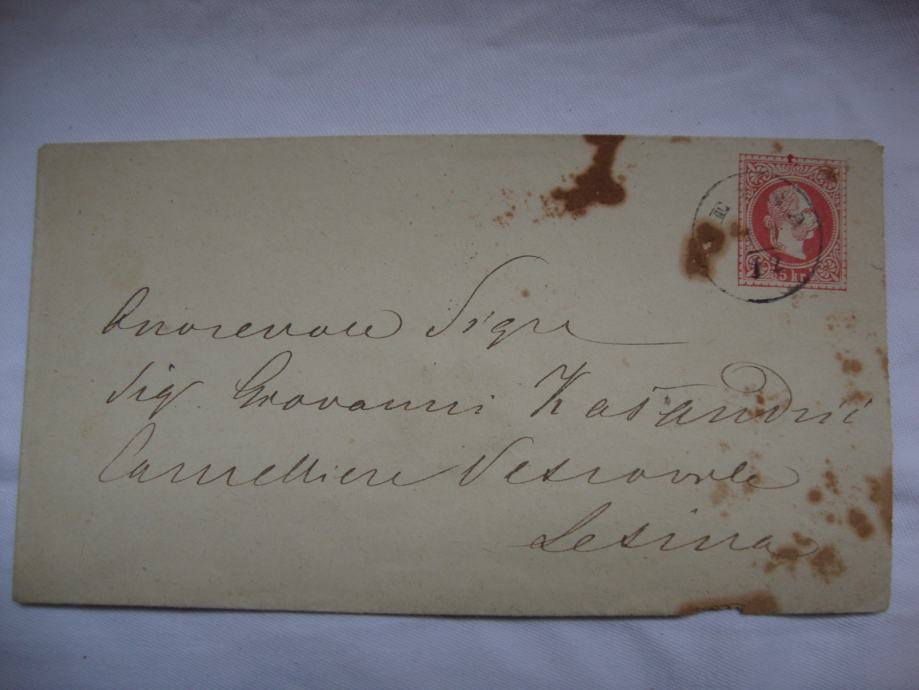 5 kr.
Onorevole Sigre
Sig. Giovanni Kašandrić
Cancelliere Vescovile
Lesina